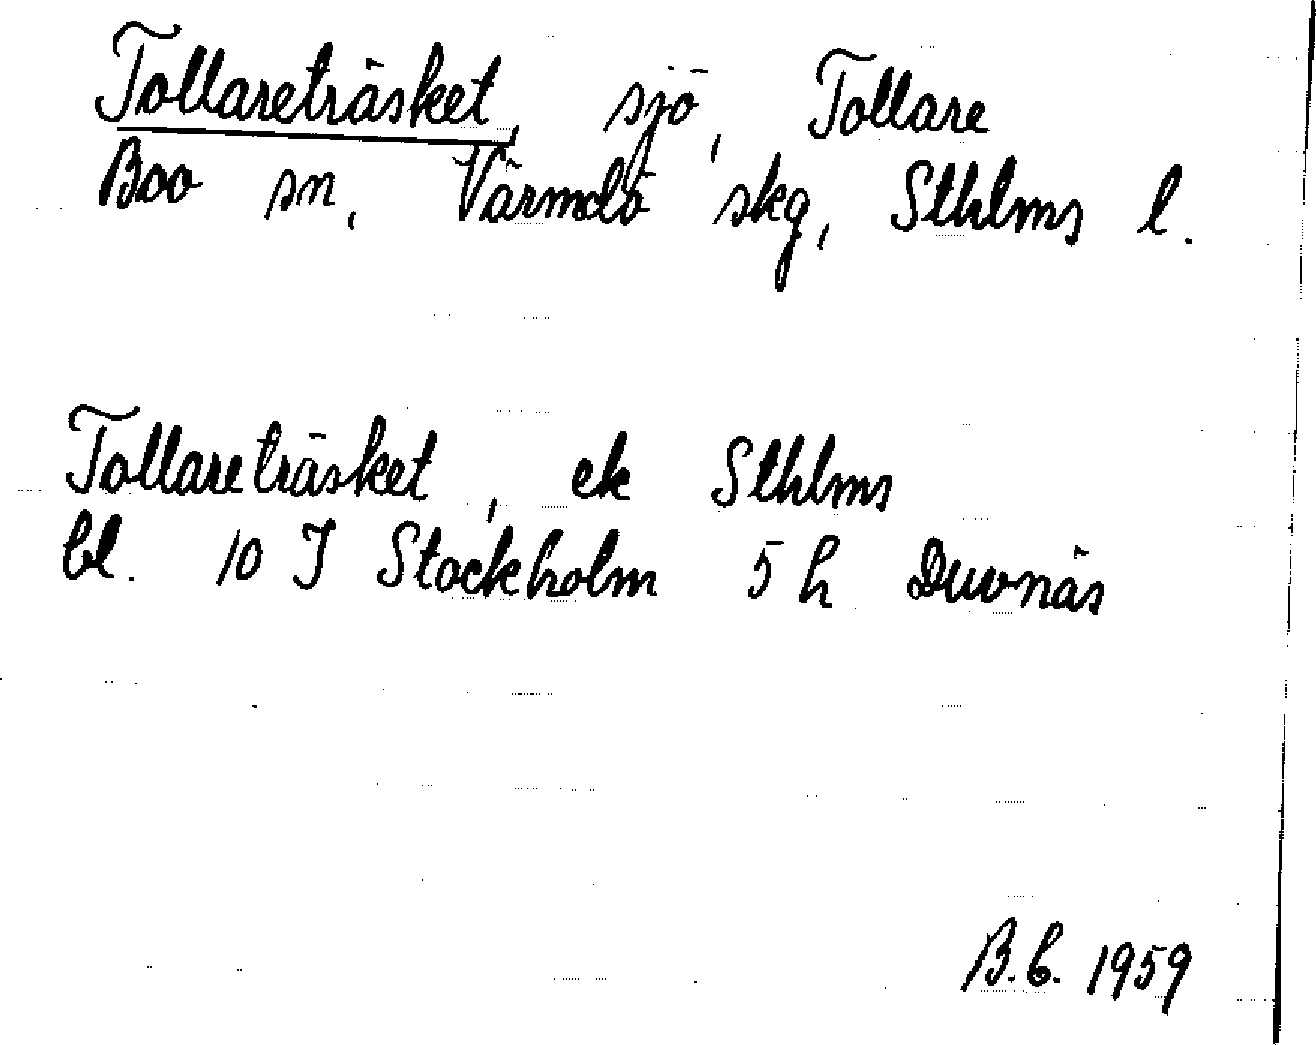 Tollareträsket, sjö, Tollare
Boo sn, Värmdö skg, Sthlms l.
Tollareträsket, ek Sthlms
bl. 10 J Stockholm 5 h Duvnäs
B.C. 1959